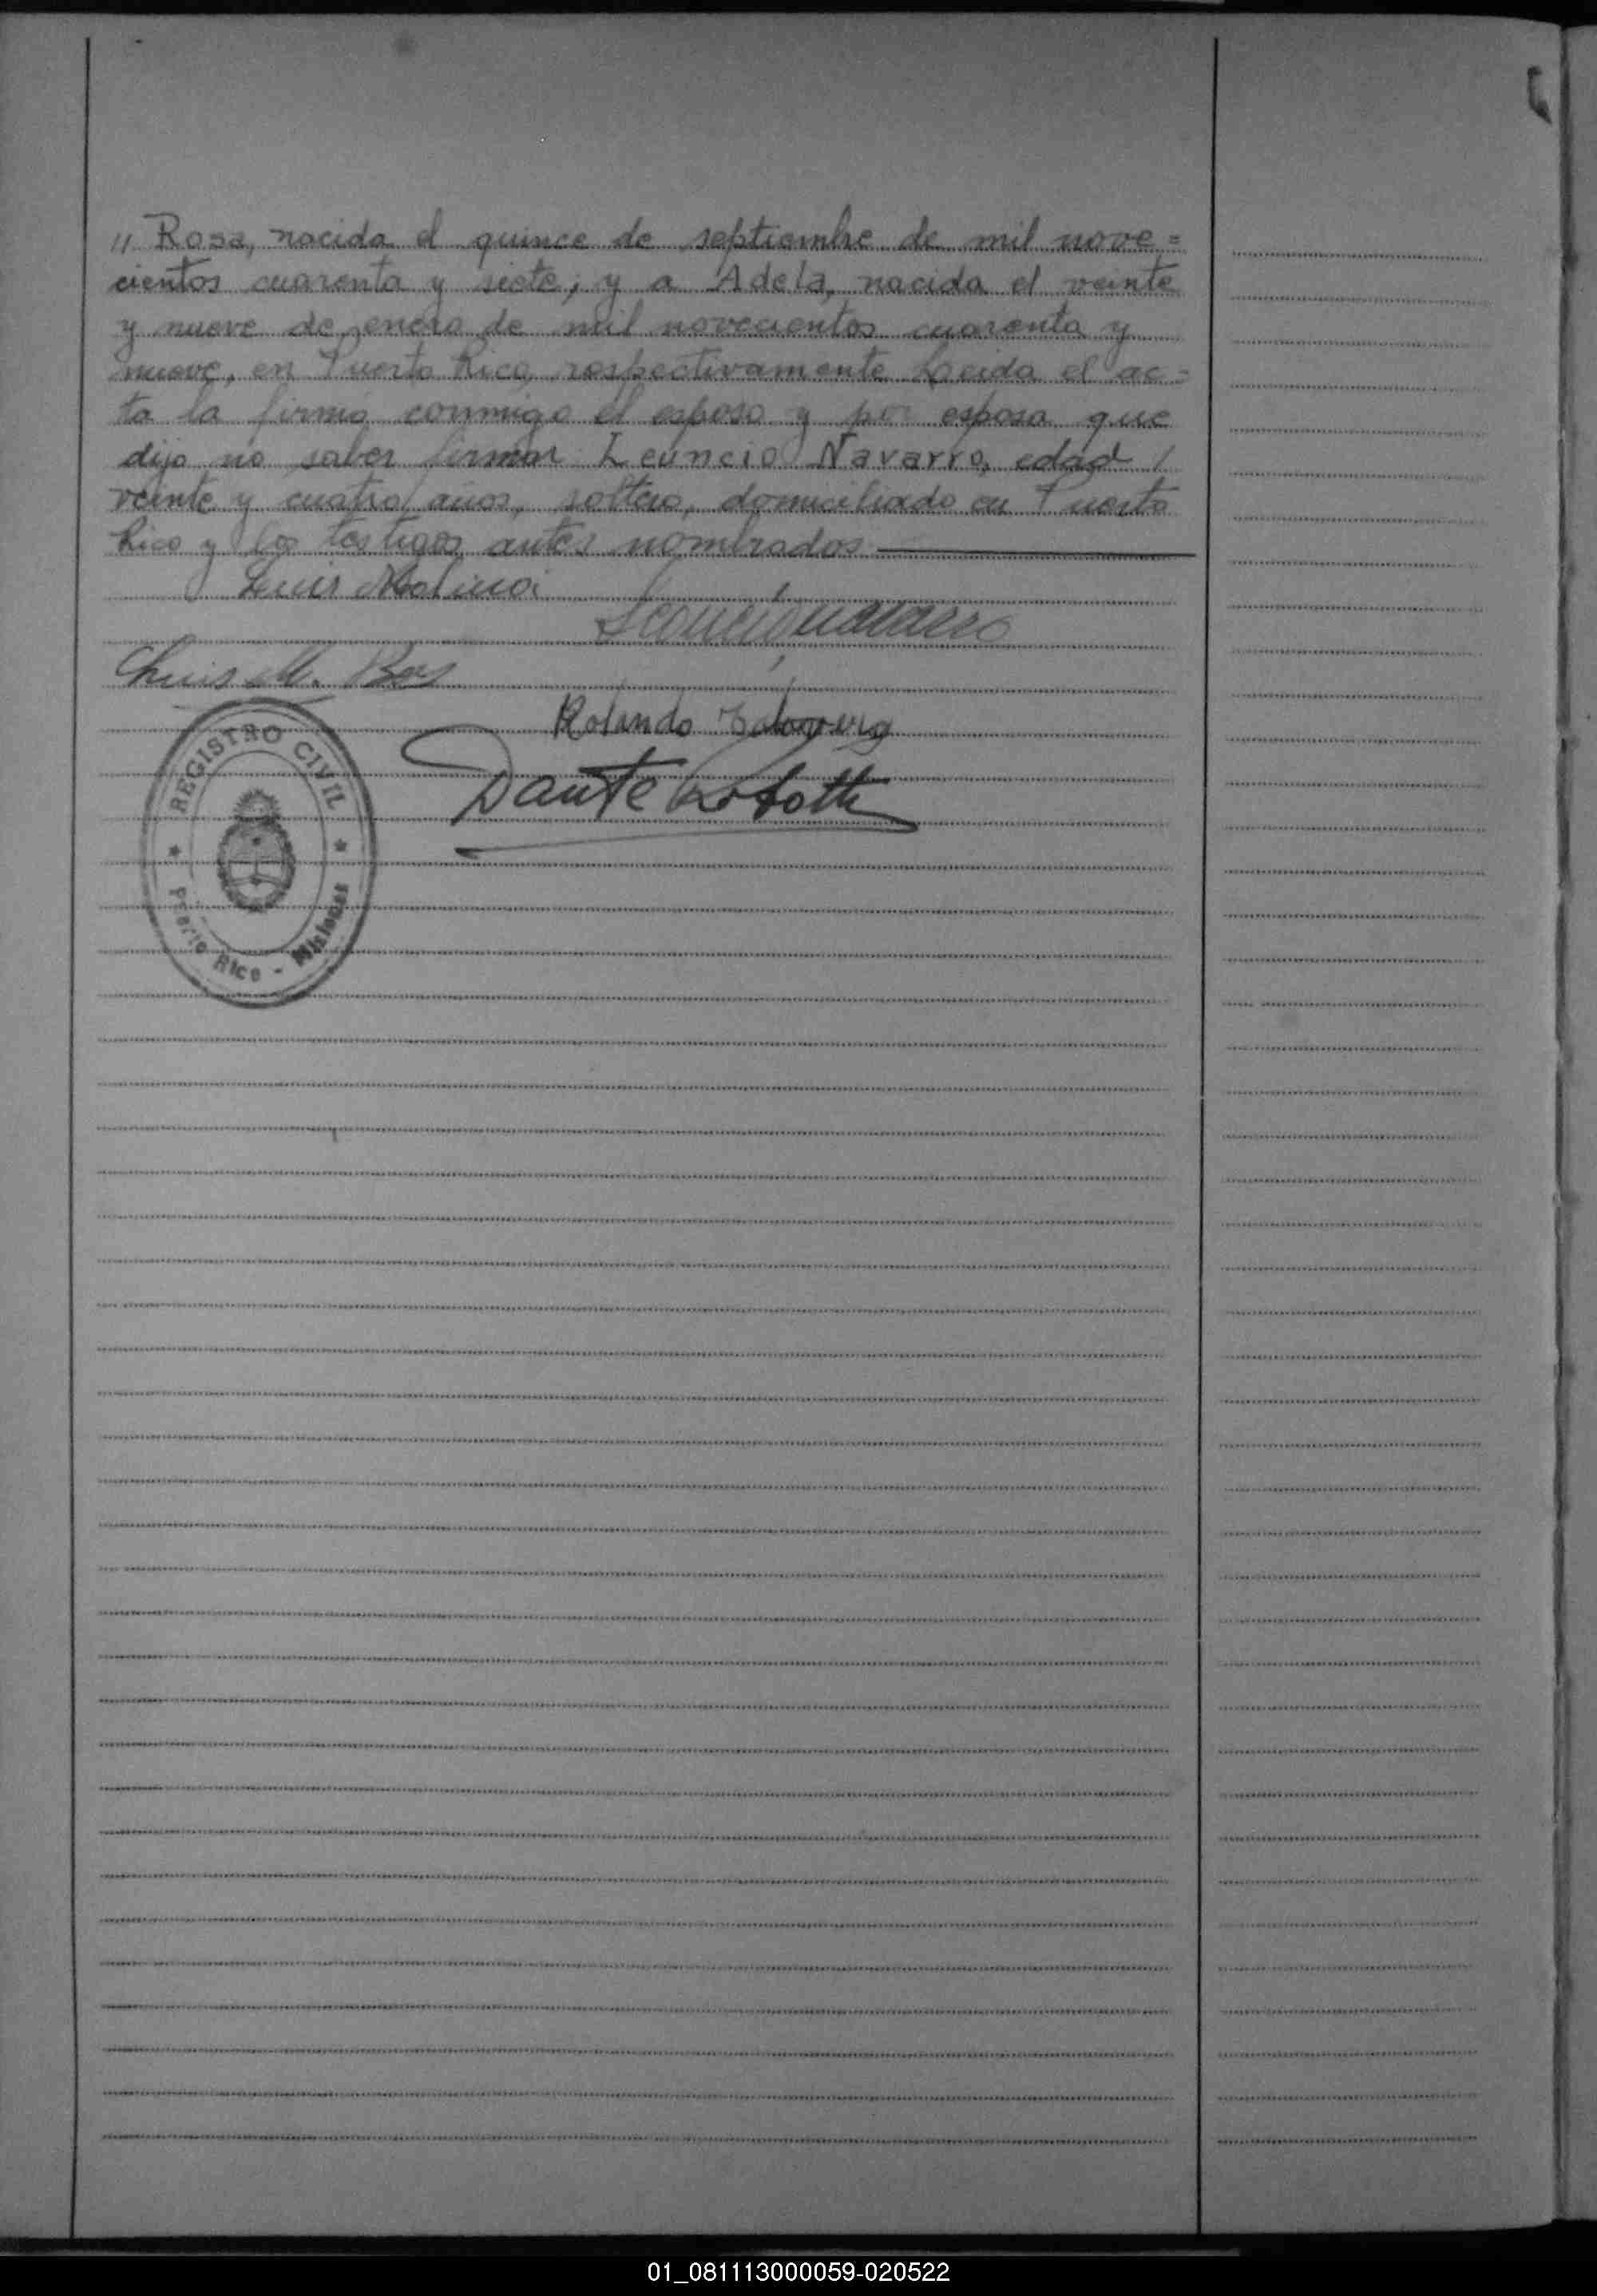 " Rosa, nacida el quince de septiembre de mil nove=
cientos cuarenta y siete; y a Adela, nacida el veinte
y nueve de enero de mil novecientos cuarenta y
nueve, en Puerto Rico, respectivamente. Leida el ac=
ta la firmó conmigo el esposo y por esposa que
dijo no saber firmar Leuncio Navarro, edad /
veinte y cuatro años, soltero, domiciliado en Puerto
Rico y los testigos antes nombrados
Luis Molina
Leoncio Navarro
Luis M.
Rolando
Dante
REGISTRO CIVIL
Puerto Rico - Misiones
01_081113000059-020522